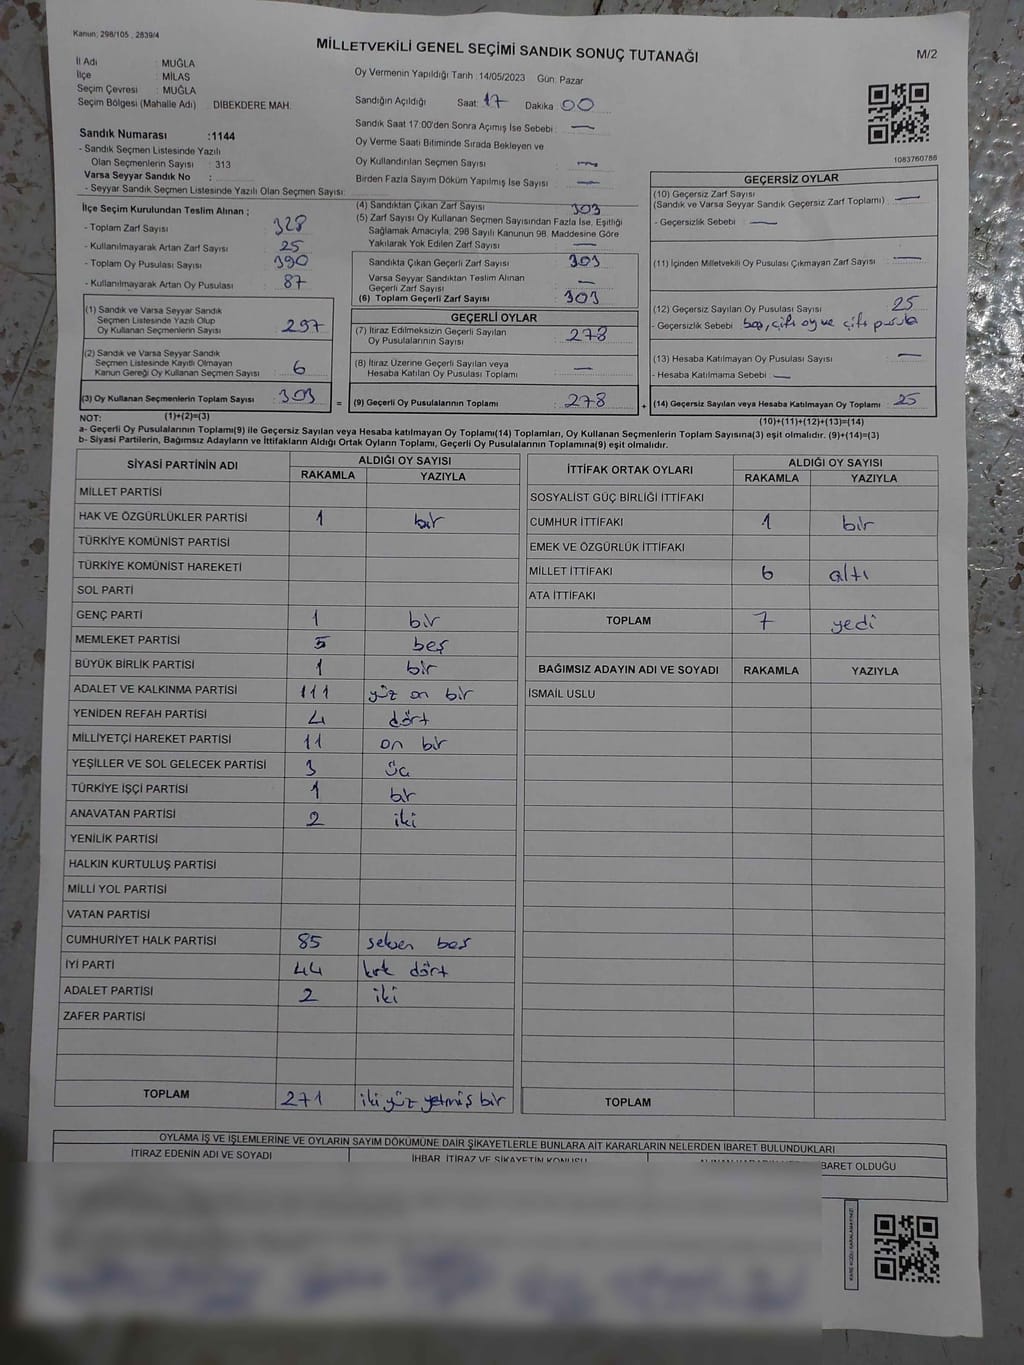 Kanun; 298/105 , 2839/4
MİLLETVEKİLİ GENEL SEÇİMİ SANDIK SONUÇ TUTANAĞI
M/2
İl Adı : MUĞLA
İlçe : MİLAS
Seçim Çevresi : MUĞLA
Seçim Bölgesi (Mahalle Adı) : DİBEKDERE MAH.
Sandık Numarası :1144
- Sandık Seçmen Listesinde Yazılı
Olan Seçmenlerin Sayısı : 313
Varsa Seyyar Sandık No :
- Seyyar Sandık Seçmen Listesinde Yazılı Olan Seçmen Sayısı:
Oy Vermenin Yapıldığı Tarih :14/05/2023 Gün: Pazar
Sandığın Açıldığı Saat: 17 Dakika : 00
Sandık Saat 17:00'den Sonra Açımış İse Sebebi : —
Oy Verme Saati Bitiminde Sırada Bekleyen ve
Oy Kullandırılan Seçmen Sayısı : —
Birden Fazla Sayım Döküm Yapılmış İse Sayısı : —
1083760786
İlçe Seçim Kurulundan Teslim Alınan ;
- Toplam Zarf Sayısı : 328
- Kullanılmayarak Artan Zarf Sayısı : 25
- Toplam Oy Pusulası Sayısı : 390
- Kullanılmayarak Artan Oy Pusulası : 87
(1) Sandık ve Varsa Seyyar Sandık
Seçmen Listesinde Yazılı Olup
Oy Kullanan Seçmenlerin Sayısı : 297
(2) Sandık ve Varsa Seyyar Sandık
Seçmen Listesinde Kayıtlı Olmayan
Kanun Gereği Oy Kullanan Seçmen Sayısı : 6
(3) Oy Kullanan Seçmenlerin Toplam Sayısı : 303
(1)+(2)=(3)
(4) Sandıktan Çıkan Zarf Sayısı : 303
(5) Zarf Sayısı Oy Kullanan Seçmen Sayısından Fazla İse, Eşitliği
Sağlamak Amacıyla, 298 Sayılı Kanunun 98. Maddesine Göre
Yakılarak Yok Edilen Zarf Sayısı : —
Sandıkta Çıkan Geçerli Zarf Sayısı : 303
Varsa Seyyar Sandıktan Teslim Alınan
Geçerli Zarf Sayısı : —
(6) Toplam Geçerli Zarf Sayısı : 303
GEÇERLİ OYLAR
(7) İtiraz Edilmeksizin Geçerli Sayılan
Oy Pusulalarının Sayısı : 278
(8) İtiraz Üzerine Geçerli Sayılan veya
Hesaba Katılan Oy Pusulası Toplamı : —
= (9) Geçerli Oy Pusulalarının Toplamı : 278 +
GEÇERSİZ OYLAR
(10) Geçersiz Zarf Sayısı
(Sandık ve Varsa Seyyar Sandık Geçersiz Zarf Toplamı) : —
- Geçersizlik Sebebi : —
(11) İçinden Milletvekili Oy Pusulası Çıkmayan Zarf Sayısı : —
(12) Geçersiz Sayılan Oy Pusulası Sayısı : 25
- Geçersizlik Sebebi : boş, çift oy ve çift pusula
(13) Hesaba Katılmayan Oy Pusulası Sayısı : —
- Hesaba Katılmama Sebebi : —
(14) Geçersiz Sayılan veya Hesaba Katılmayan Oy Toplamı : 25
(10)+(11)+(12)+(13)=(14)
NOT:
a- Geçerli Oy Pusulalarının Toplamı(9) ile Geçersiz Sayılan veya Hesaba katılmayan Oy Toplamı(14) Toplamları, Oy Kullanan Seçmenlerin Toplam Sayısına(3) eşit olmalıdır. (9)+(14)=(3)
b- Siyasi Partilerin, Bağımsız Adayların ve İttifakların Aldığı Ortak Oyların Toplamı, Geçerli Oy Pusulalarının Toplamına(9) eşit olmalıdır.
SİYASİ PARTİNİN ADI ALDIĞI OY SAYISI
RAKAMLA YAZIYLA
MİLLET PARTİSİ
HAK VE ÖZGÜRLÜKLER PARTİSİ 1 bir
TÜRKİYE KOMÜNİST PARTİSİ
TÜRKİYE KOMÜNİST HAREKETİ
SOL PARTİ
GENÇ PARTİ 1 bir
MEMLEKET PARTİSİ 5 beş
BÜYÜK BİRLİK PARTİSİ 1 bir
ADALET VE KALKINMA PARTİSİ 111 yüz on bir
YENİDEN REFAH PARTİSİ 4 dört
MİLLİYETÇİ HAREKET PARTİSİ 11 on bir
YEŞİLLER VE SOL GELECEK PARTİSİ 3 üç
TÜRKİYE İŞÇİ PARTİSİ 1 bir
ANAVATAN PARTİSİ 2 iki
YENİLİK PARTİSİ
HALKIN KURTULUŞ PARTİSİ
MİLLİ YOL PARTİSİ
VATAN PARTİSİ
CUMHURİYET HALK PARTİSİ 85 seksen beş
İYİ PARTİ 44 kırk dört
ADALET PARTİSİ 2 iki
ZAFER PARTİSİ
TOPLAM 271 iki yüz yetmiş bir
İTTİFAK ORTAK OYLARI ALDIĞI OY SAYISI
RAKAMLA YAZIYLA
SOSYALİST GÜÇ BİRLİĞİ İTTİFAKI
CUMHUR İTTİFAKI 1 bir
EMEK VE ÖZGÜRLÜK İTTİFAKI
MİLLET İTTİFAKI 6 altı
ATA İTTİFAKI
TOPLAM 7 yedi
BAĞIMSIZ ADAYIN ADI VE SOYADI RAKAMLA YAZIYLA
İSMAİL USLU
TOPLAM
OYLAMA İŞ VE İŞLEMLERİNE VE OYLARIN SAYIM DÖKÜMÜNE DAİR ŞİKAYETLERLE BUNLARA AİT KARARLARIN NELERDEN İBARET BULUNDUKLARI
İTİRAZ EDENİN ADI VE SOYADI İHBAR, İTİRAZ VE ŞİKAYETİN KONUSU ALINAN KARARIN NEDEN İBARET OLDUĞU